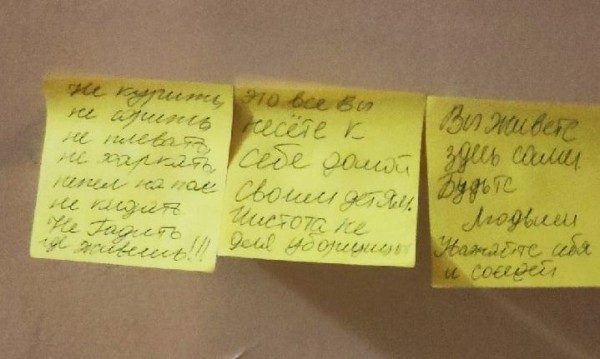 Не курить,
не орить,
не плевать,
не харкать,
пепел на пол
не кидать
Не Гадить
где живешь!!!
это все вы
несёте к
себе домой
своим детям.
Чистота не
для уборщицы
Вы живете
здесь сами
Будьте
Людьми
Уважайте себя
и соседей